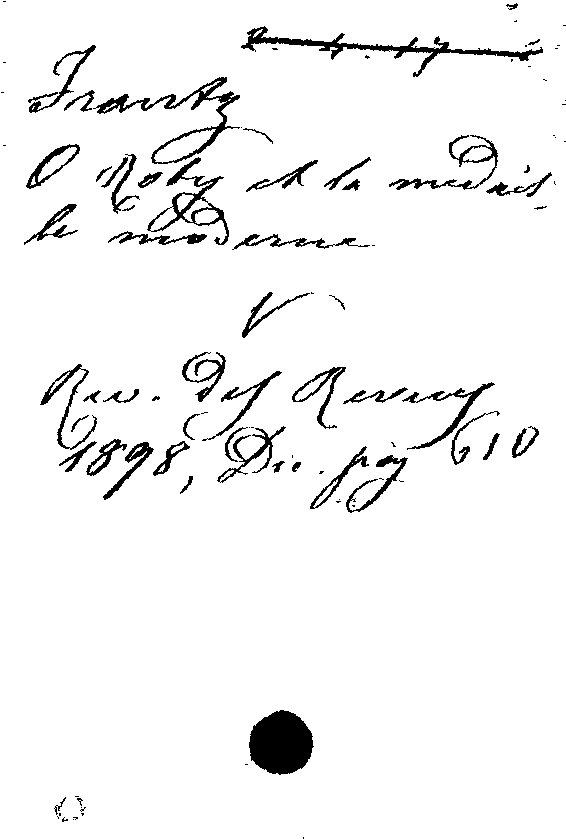 Frantz
O Roty et la médail-
le moderne
V
Rev. des Revues
1898, Dec. pag 610